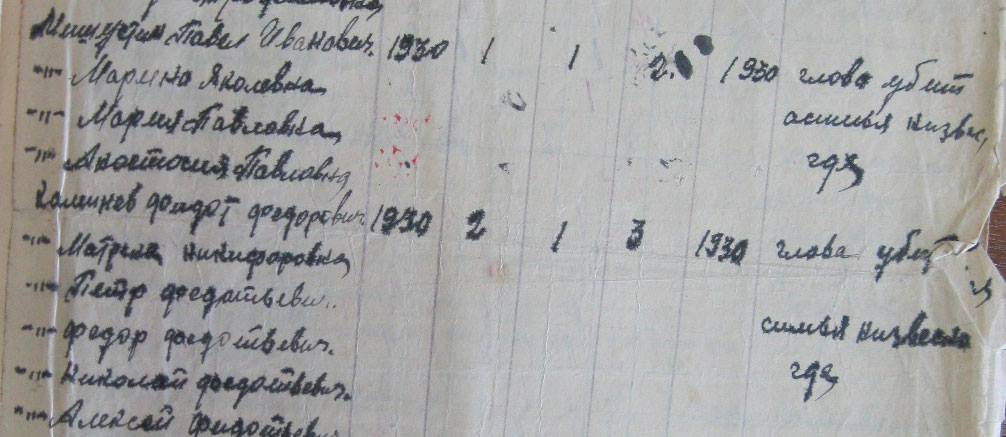 Мишустин Павел Иванович. 1930 1 1 2. 1930 глава убит
-"- Марина Яколевна
-"- Мария Павловна асимья низвес,
-"- Аностосия Павловна где
Каминев федот федорович 1930 2 1 3 1930 глава убит
-"- Матрена никифоровна
-"- Петр федотьевич..
-"- федор федотьевич. симья низвесна
-"- Николай федотьевич. где
-"- Алексей федотьевич